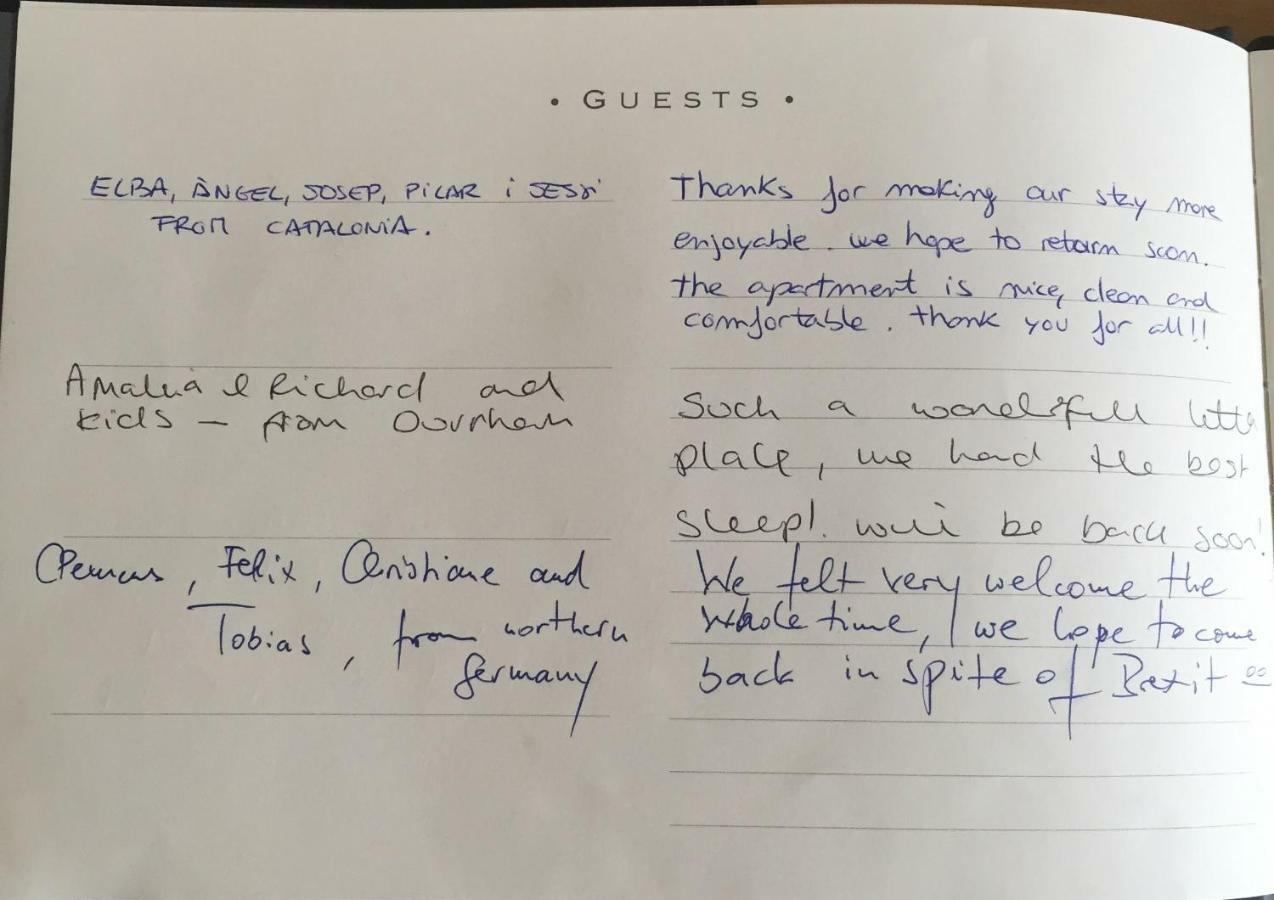 • GUESTS •
ELBA, ÀNGEL, JOSEP, PILAR i JESSI
FROM CATALONIA.
Thanks for making our stay more
enjoyable. we hope to return soon.
the apartment is nice, clean and
comfortable. thank you for all!!
Amalia & Richard and
kids – from Durham
Such a wonderful little
place, we had the best
sleep! will be back soon!
Felix, Christiane and
Tobias, from northern
Germany
We felt very welcome the
whole time, we hope to come
back in spite of Brexit